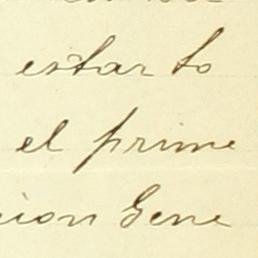 estar to
el prime
cion Gene